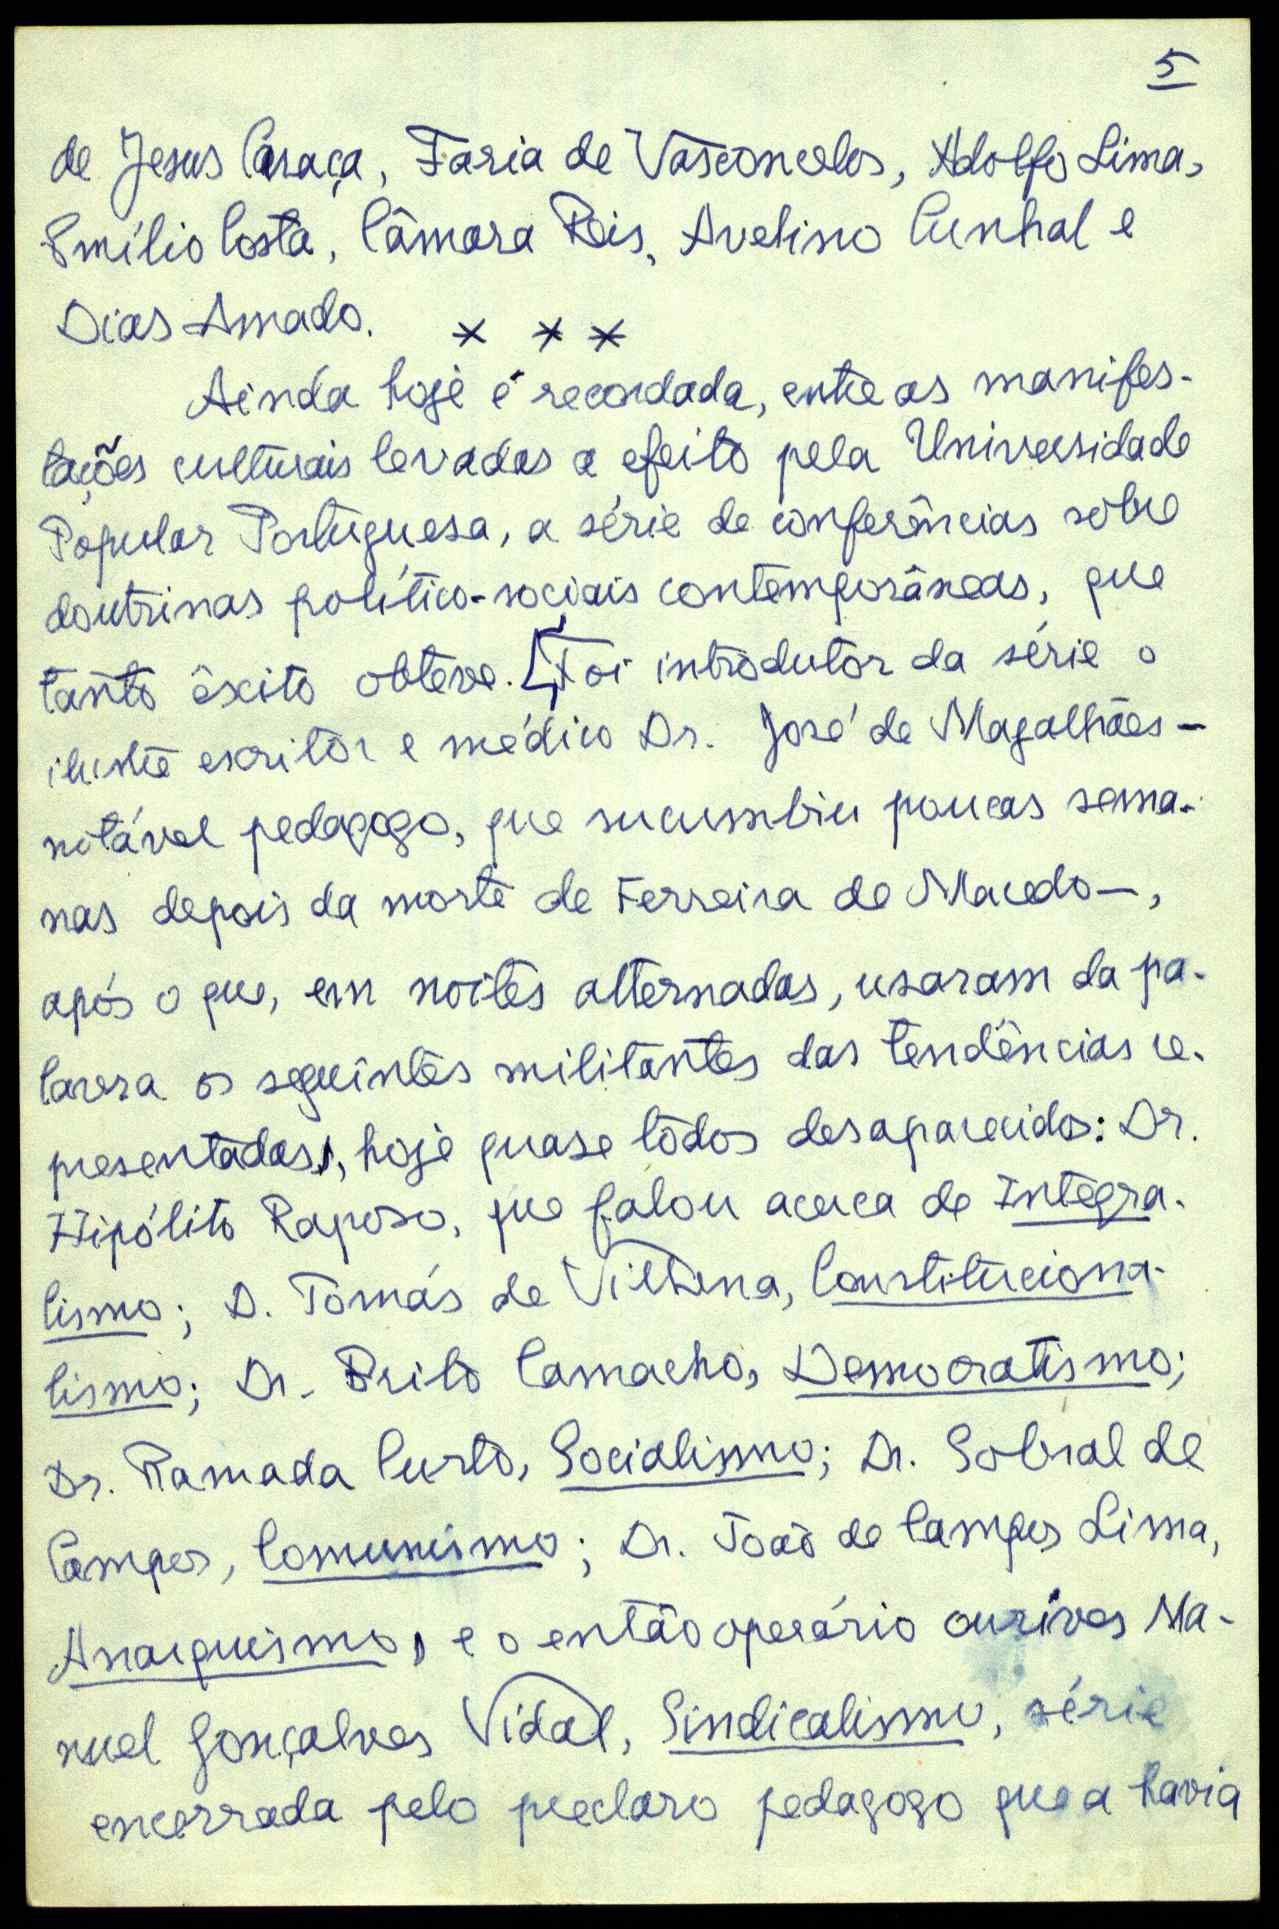 5
de Jesus Caraça, Faria de Vasconcelos, Adolfo Lima,
Emílio Costa, Câmara Reis, Avelino Cunhal e
Dias Amado. * * *
Ainda hoje é recordada, entre as manifes-
tações culturais levadas a efeito pela Universidade
Popular Portuguesa, a série de conferências sôbre
doutrinas político-sociais contemporâneas, que
tanto êxito obteve. [Foi introdutor da série o
ilustre escritor e médico Dr. José de Magalhães —
notável pedagogo, que sucumbiu poucas sema-
nas depois da morte de Ferreira de Macedo —,
após o que, em noites alternadas, usaram da pa-
lavra os seguintes militantes das tendências re-
presentadas, hoje quase todos desaparecidos: Dr.
Hipólito Raposo, que falou acerca de Integra-
lismo; D. Tomás de Vilhena, Constituciona-
lismo; Dr. Brito Camacho, Democratismo;
Dr. Ramada Curto, Socialismo; Dr. Sobral de
Campos, Comunismo; Dr. João de Campos Lima,
Anarquismo, e o então operário ourives Ma-
nuel Gonçalves Vidal, Sindicalismo, série
encerrada pelo preclaro pedagogo que a havia